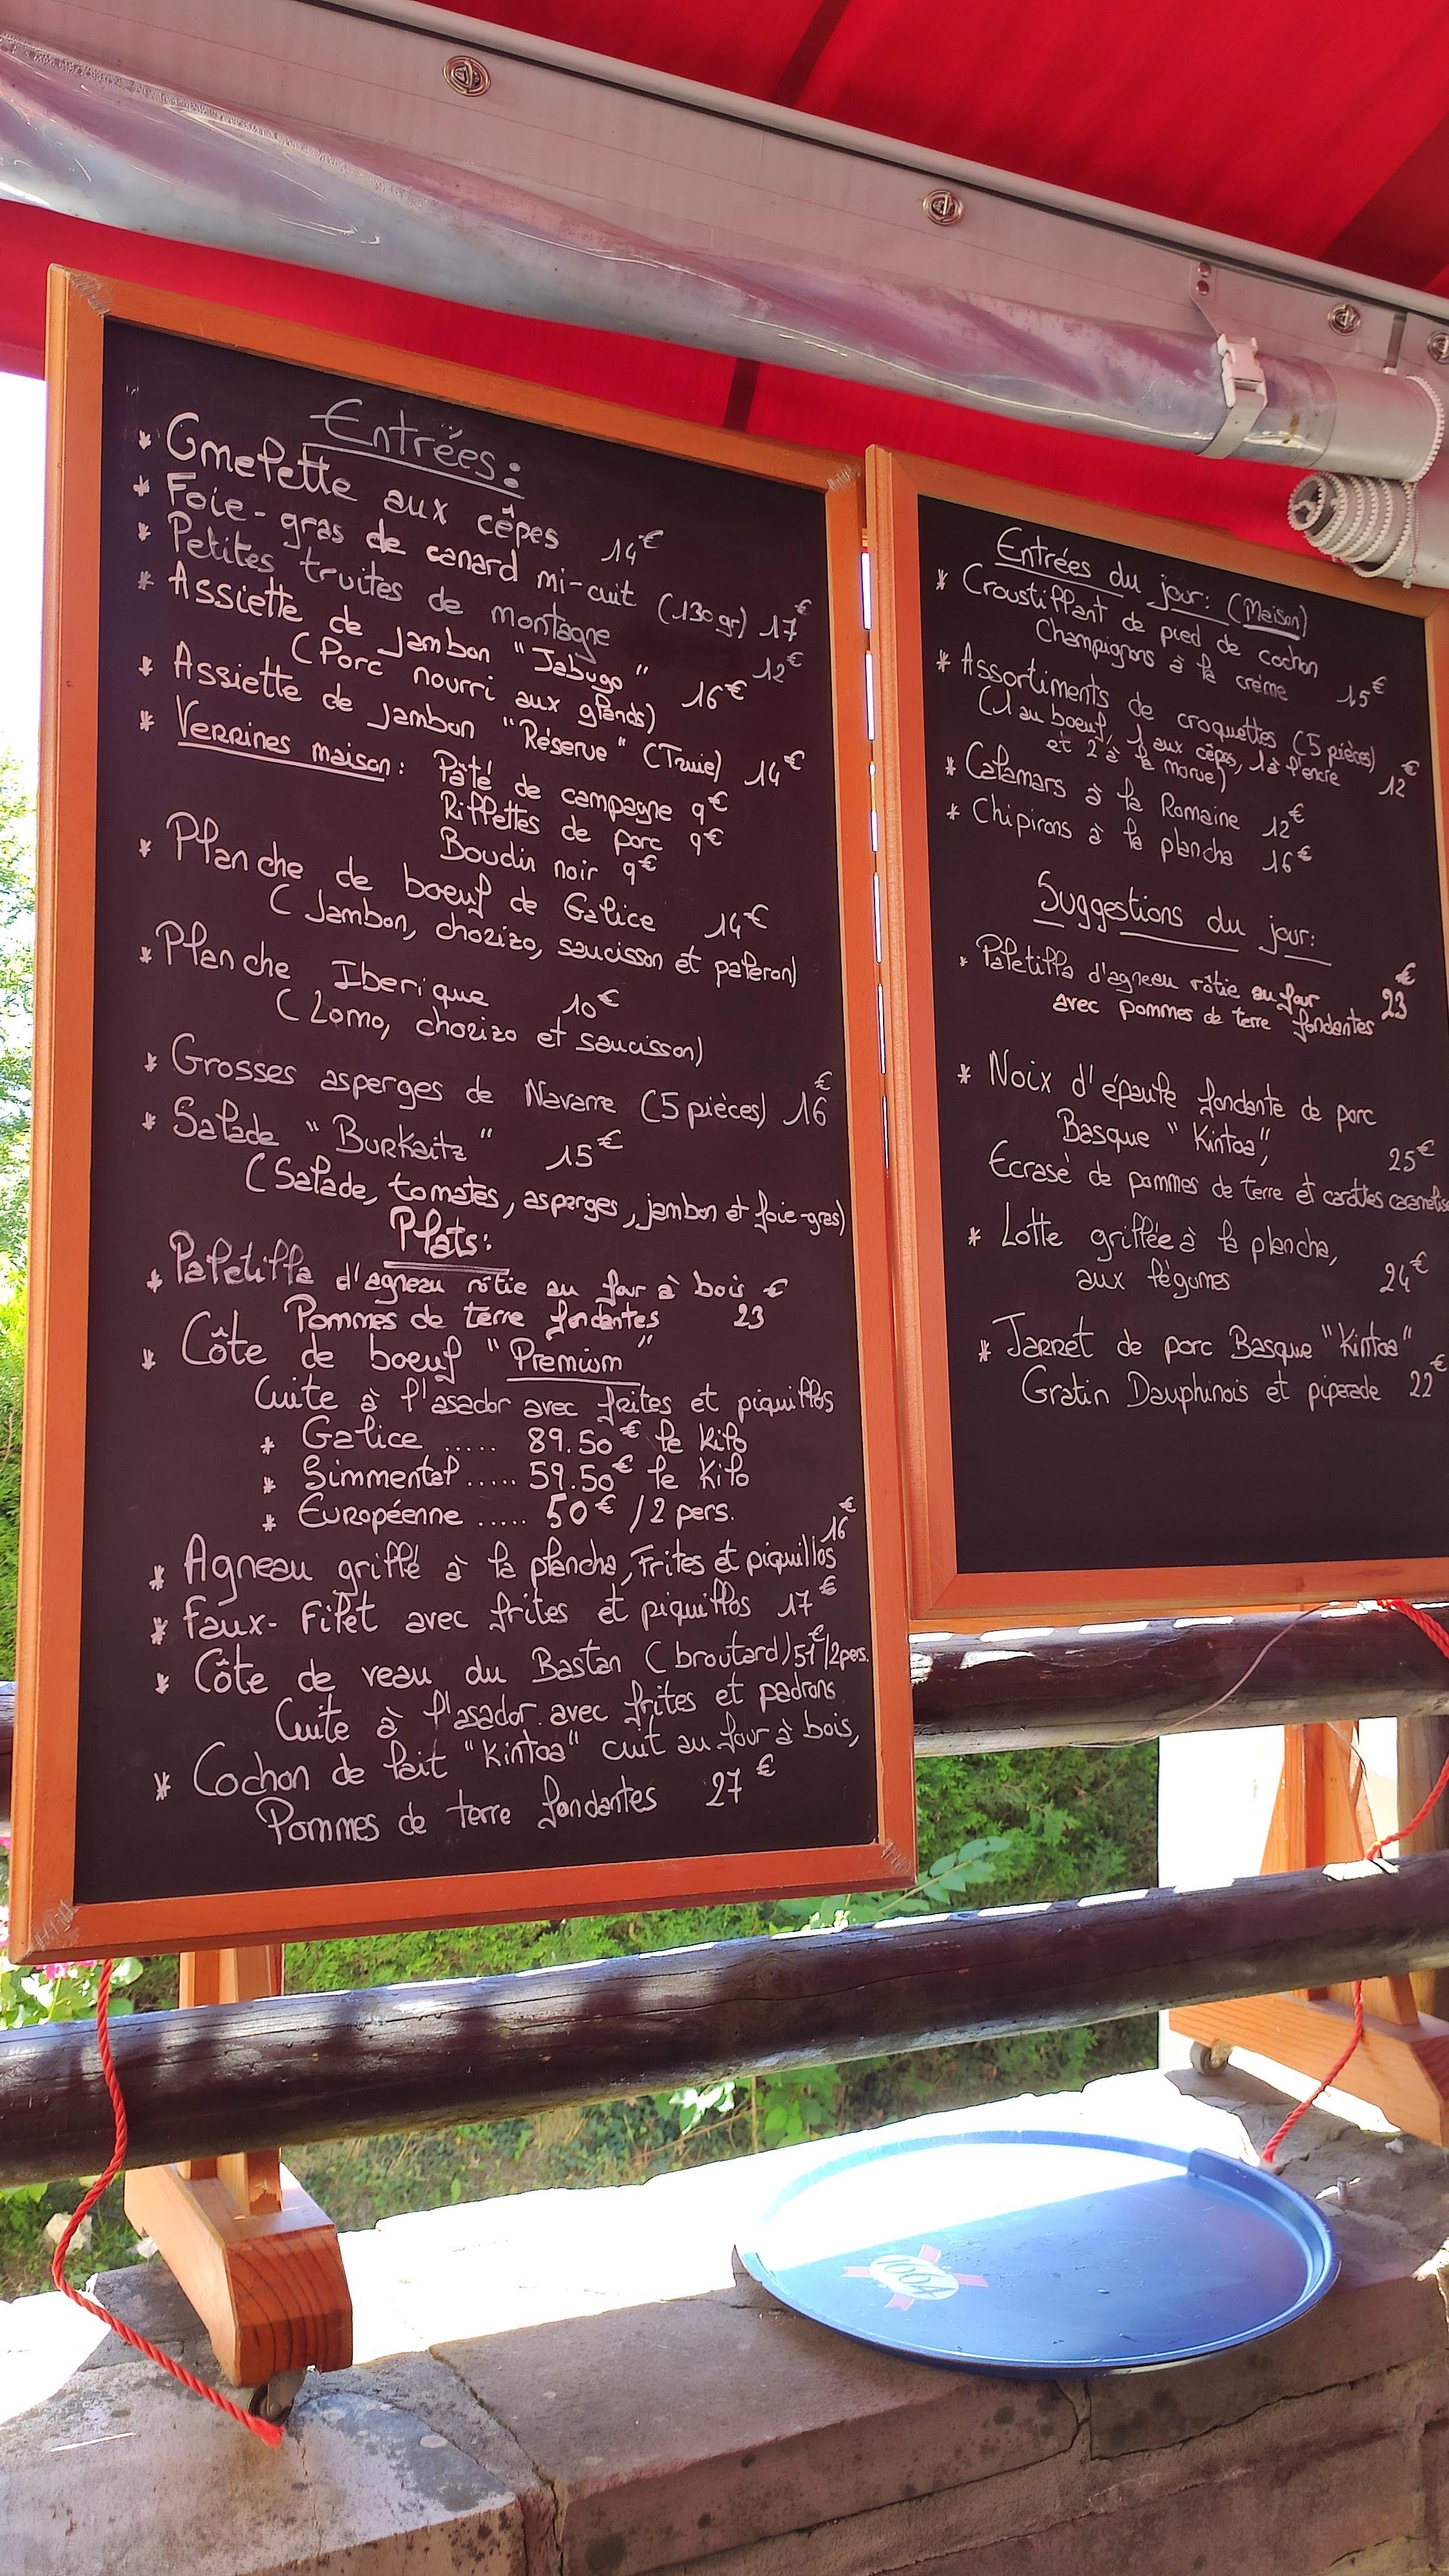 Entrées:
* Omelette aux cêpes 14€
* Foie-gras de canard mi-cuit (130gr) 17€
* Petites truites de montagne 12€
* Assiette de jambon "Jabugo" 16€
(Porc nourri aux glands)
* Assiette de jambon "Réserve" (Truie) 14€
* Verrines maison: Pâté de campagne 9€
Rillettes de porc 9€
Boudin noir 9€
* Planche de boeuf de Galice 14€
(Jambon, chorizo, saucisson et paleron)
* Planche Iberique 10€
(Lomo, chorizo et saucisson)
* Grosses asperges de Navarre (5 pièces) 16€
* Salade "Burkaitz" 15€
(Salade, tomates, asperges, jambon et foie-gras)
Plats:
* Paletilla d'agneau rôtie au four à bois €
Pommes de terre fondantes 23
* Côte de boeuf "Premium"
Cuite à l'asador avec frites et piquillos
* Galice ..... 89.50€ le kilo
* Simmental ..... 59.50€ le kilo
* Européenne ..... 50€ /2 pers.
* Agneau grillé à la plancha, Frites et piquillos 16€
* Faux-Filet avec frites et piquillos 17€
* Côte de veau du Bastan (broutard) 51€/2pers.
Cuite à l'asador avec frites et padrons
* Cochon de lait "Kintoa" cuit au four à bois,
Pommes de terre fondantes 27€
Entrées du jour: (Maison)
* Croustillant de pied de cochon
Champignons à la crème 15€
* Assortiments de croquettes (5 pièces)
(1 au boeuf, 1 aux cêpes, 1 à l'encre
et 2 à la morue) 12€
* Calamars à la Romaine 12€
* Chipirons à la plancha 16€
Suggestions du jour:
* Paletilla d'agneau rôtie au four
avec pommes de terre fondantes 23€
* Noix d'épaule fondante de porc
Basque "Kintoa", 25€
Ecrasé de pommes de terre et carottes
* Lotte grillée à la plancha,
aux légumes 24€
* Jarret de porc Basque "Kintoa"
Gratin Dauphinois et piperade 22€
1664